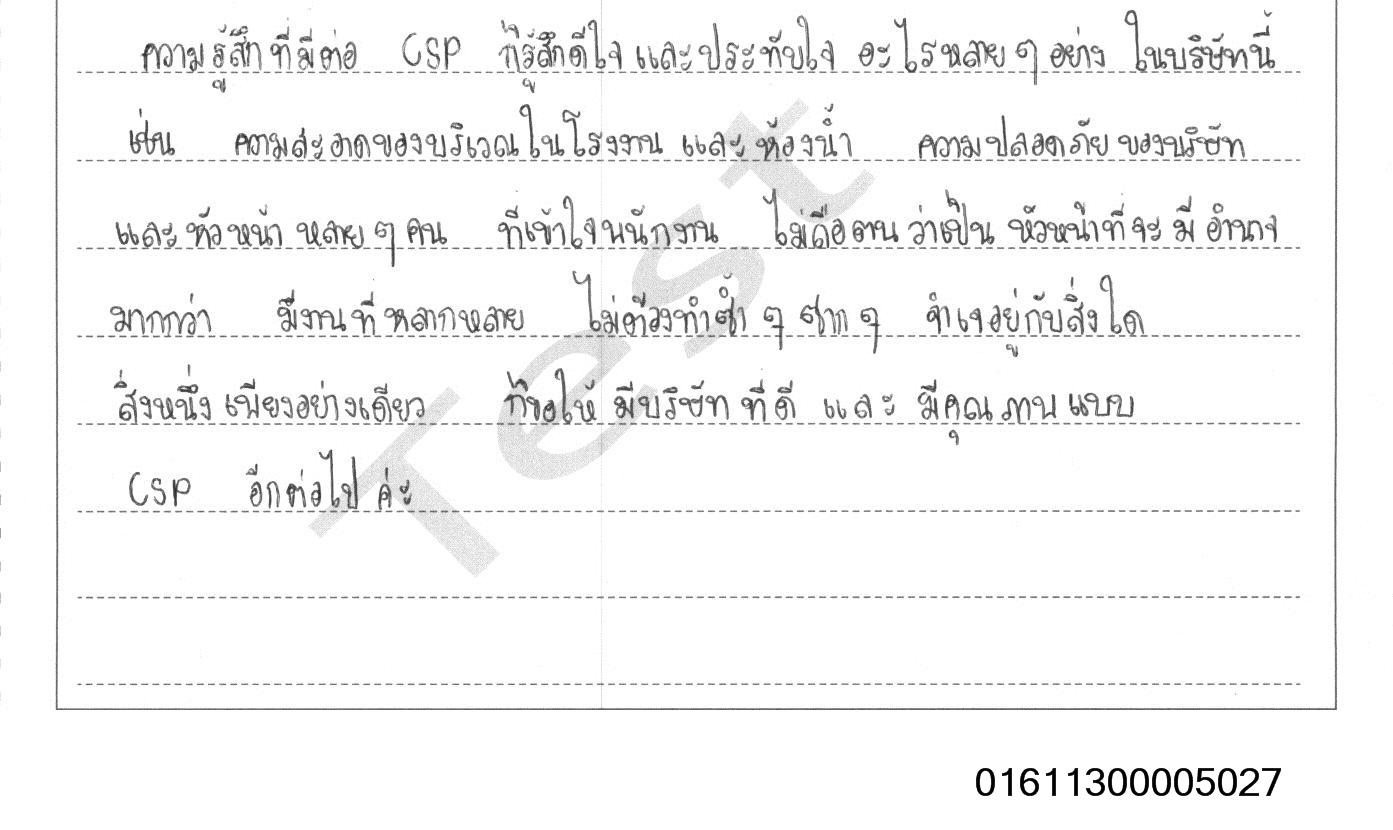 ความรู้สึกที่มีต่อ CSP ก็รู้สึกดีใจ และประทับใจ อะไรหลาย ๆ อย่าง ในบริษัทนี้
เช่น ความสะอาดของบริเวณในโรงงาน และห้องน้ำ ความปลอดภัยของบริษัท
และหัวหน้า หลาย ๆ คน ที่เข้าใจพนักงาน ไม่ถือตนว่าเป็น หัวหน้าที่จะมี อำนาจ
มากกว่า มีงานที่หลากหลาย ไม่ต้องทำซ้ำ ๆ ซาก ๆ จำเจอยู่กับสิ่งใด
สิ่งหนึ่ง เพียงอย่างเดียว ก็ขอให้ มีบริษัท ที่ดี และ มีคุณภาพแบบ
CSP อีกต่อไป ค่ะ
Test
01611300005027